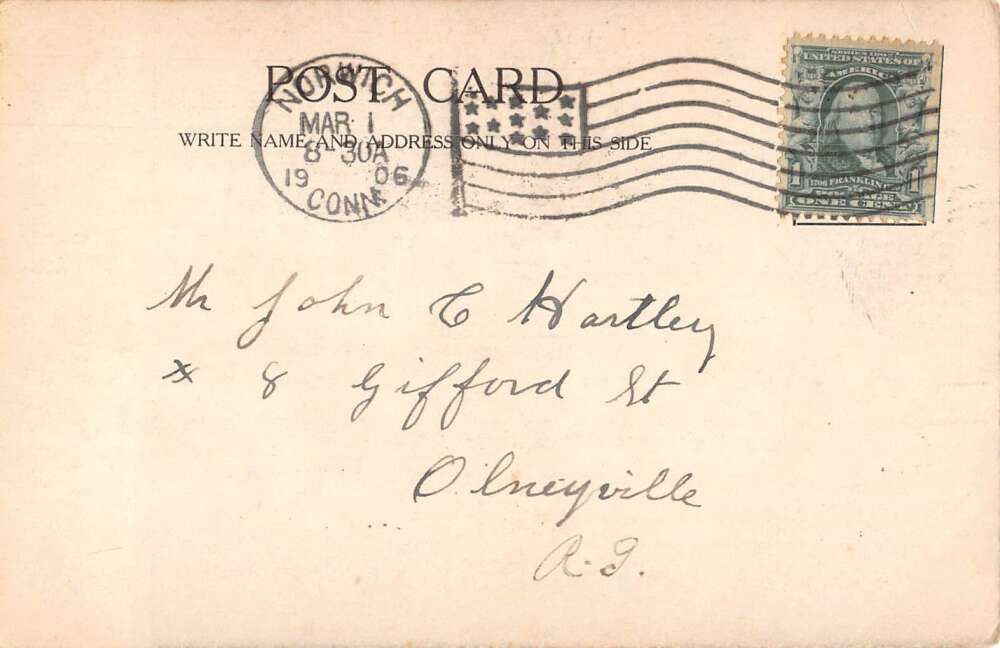 POST CARD
WRITE NAME AND ADDRESS ONLY ON THIS SIDE
NORWICH
MAR 1
8-30A
1906
CONN.
SERIES 1902
UNITED STATES OF
AMERICA
1 1706 FRANKLIN 1
POSTAGE
ONE CENT
Mr John C Hartley
# 8 Gifford St
Olneyville
R.I.